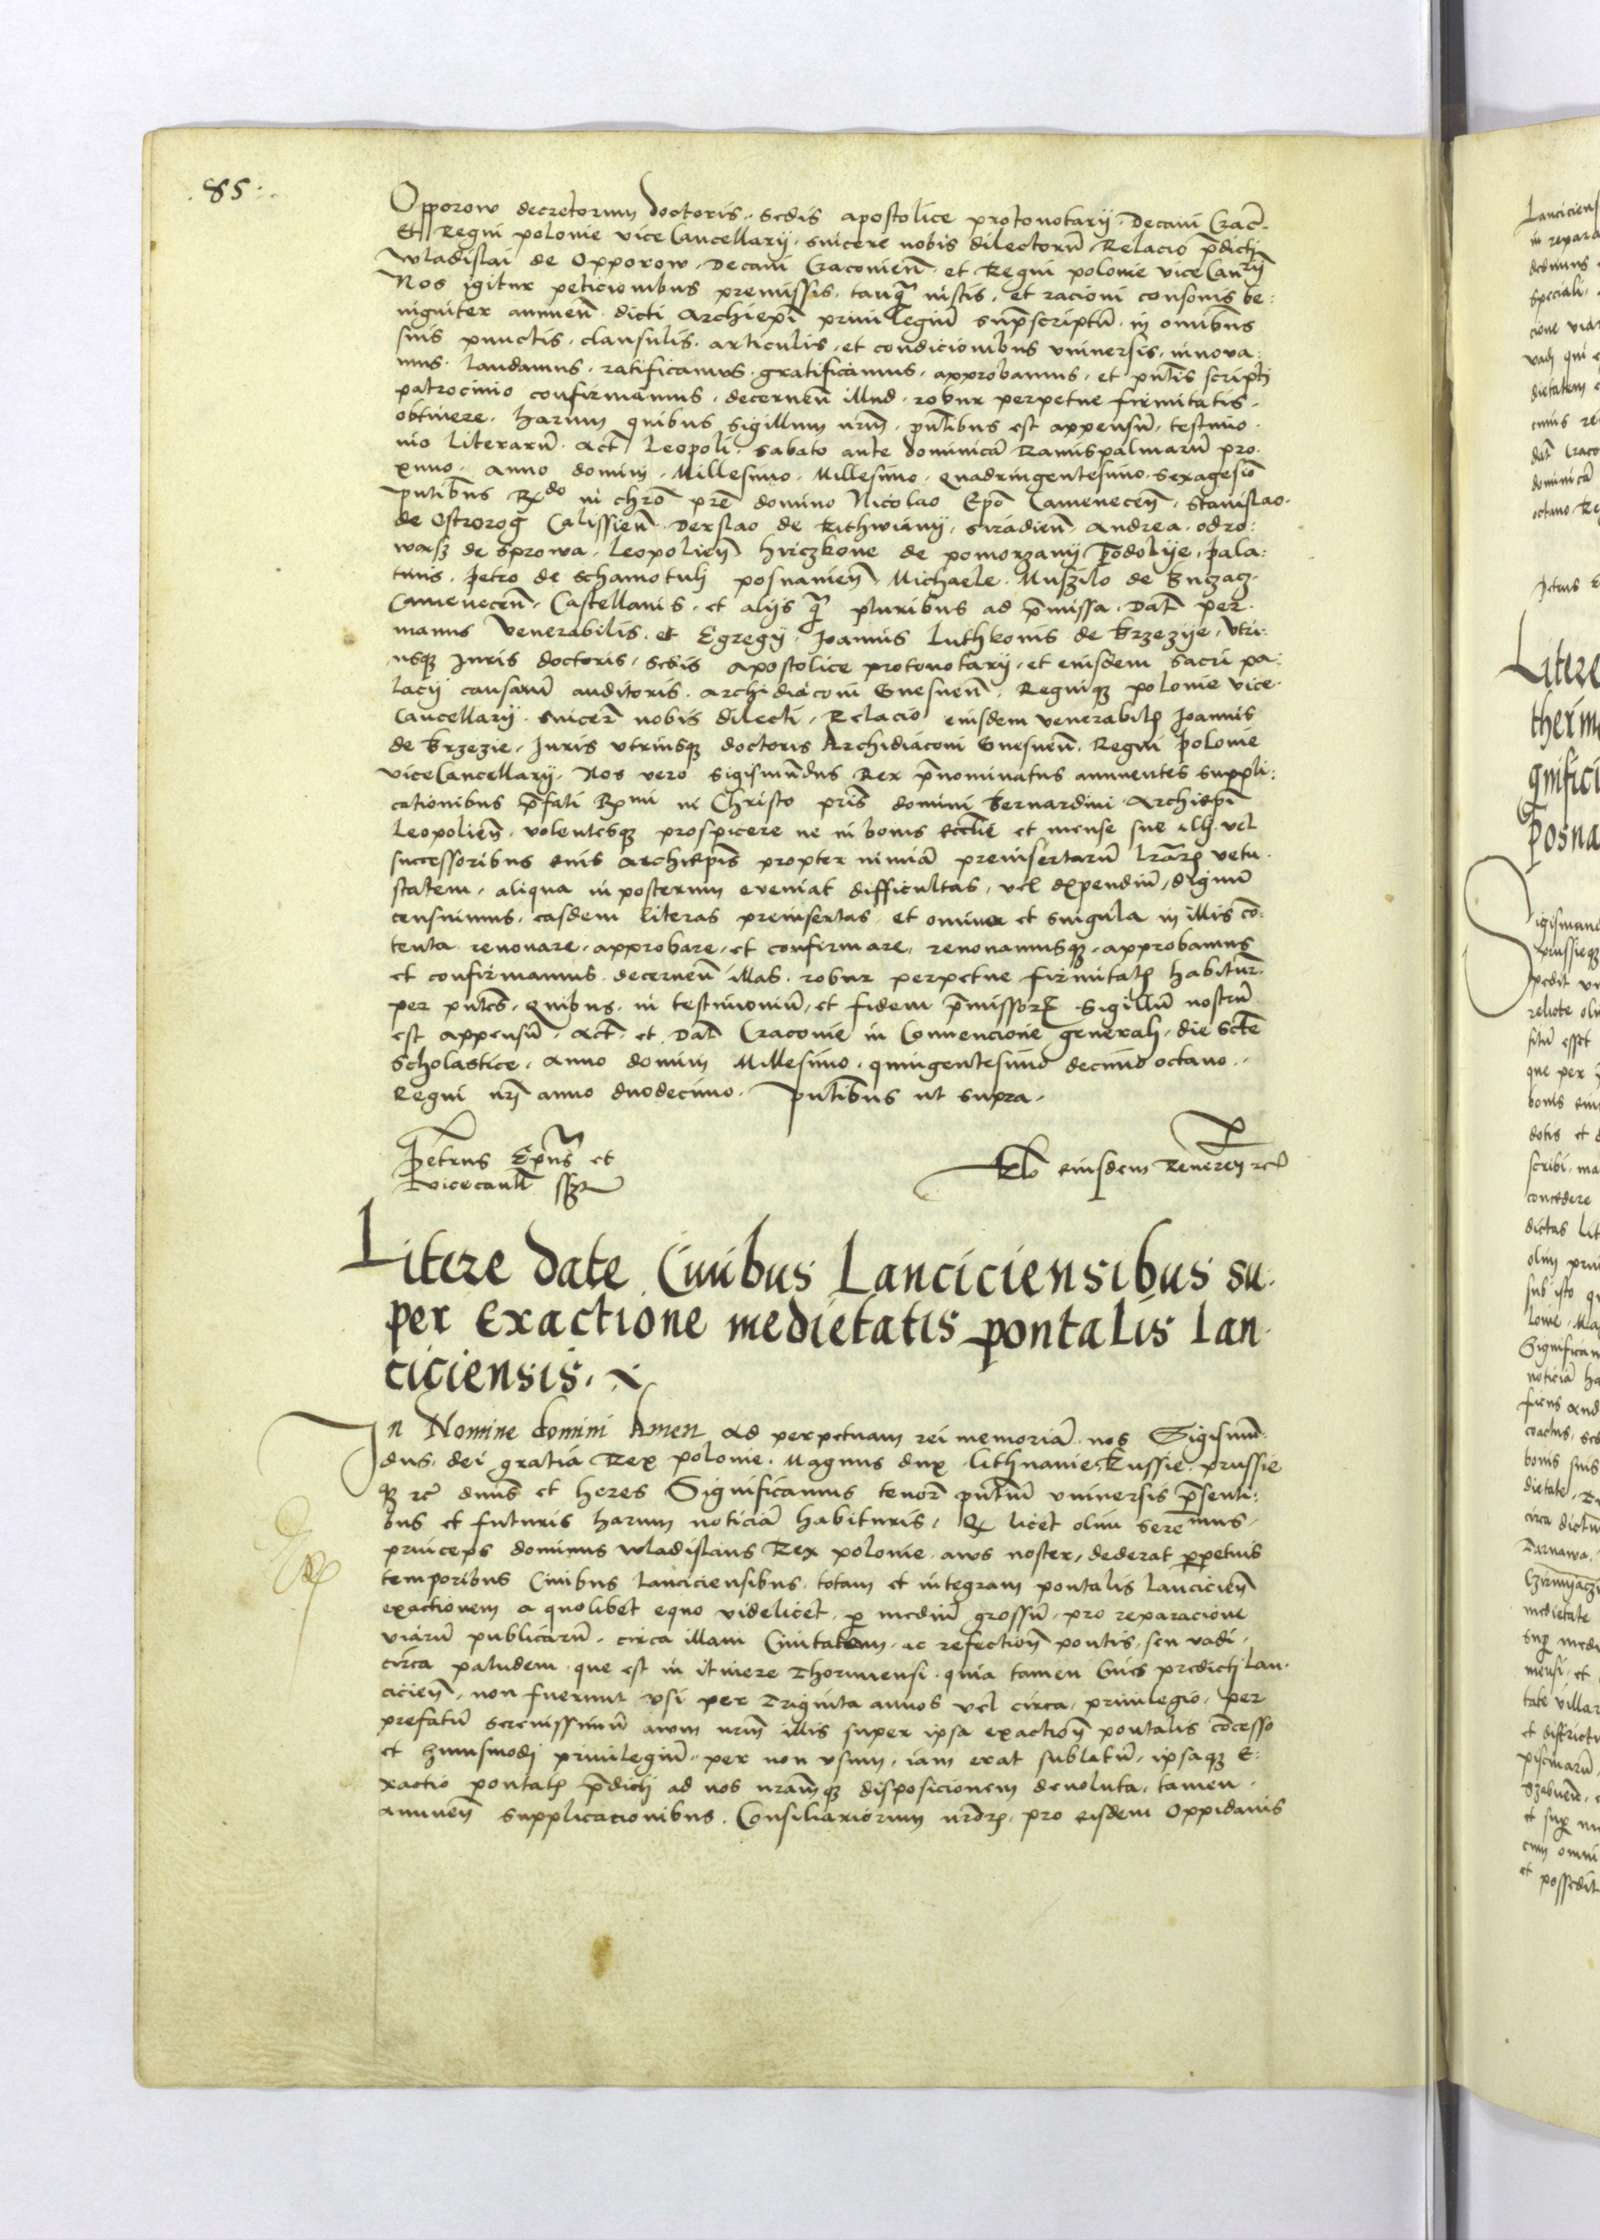 .85:.
Opporow decretorum doctoris. sedis apostolice protonotarij. Decani Crac̃.
Et Regni polonie vice Cancellarij. sincere nobis dilectorũ. Relacio p̃dicti
wladislai de Opporow. Decani Craconieñ. et Regni polonie vice Canrij̃
Nos igitur peticionibus premissis. tanq̃ iustis. et racioni consonis be:
nigniter annueñ. dicti Archiepĩ priuilegiũ sup̃scriptũ. in omnibus
suis punctis. clausulis. articulis. et condicionibus vniuersis. innoua:
mus. laudamus. ratificamus. gratificamus. approbamus. et pñtis scripti
patrocinio confirmamus. decerneñ illud. robur perpetue firmitatis.
obtinere. harum quibus sigillum nr̃m. pñtibus est appensũ. testimo.
nio literarũ. Act̃ Leopoli. sabato ante dominicã Ramispalmarũ pro.
ximo. anno domini. Millesimo. Millesimo. quadringentesimo. sexagesiõ
pñtibus Rx̃do in chrõ pr̃e domino Nicolao Ep̃o Cameneceñ. Stanislao.
de Ostrorog Calissieñ. Derslao de Rithwiani. siradieñ. Andrea. odro:
wasz de sprowa. Leopolieñ hriczkone de pomorzani podolije. pala:
tinis. petro de schamotuli posnanieñ. Michaele. Muszilo de Buczacz.
Cameneceñ. Castellanis. et alijs q̃ pluribus ad p̃missa. Dat̃ per.
manus venerabilis. et Egregij. Joannis Luthkonis de brzezije. vtri:
usq; Juris doctoris. sedis apostolice protonotarij. et eiusdem sacri pa:
lacij causarũ auditoris. archidiaconi Gnesneñ. Regniq; polonie vice.
Cancellarij. sincer̃ nobis dilecti. Relacio eiusdem venerabilis Joannis
de brzezie. Juris vtriusq; doctoris Archidiaconi Gnesneñ. Regni polonie
vice Cancellarij. Nos vero Sigismũdus Rex p̃nominatus annuentes suppli:
cationibus p̃fati Rx̃mi in Christo pris̃ domini Bernardini Archiepĩ
Leopolieñ. volentesq; prospicere ne in bonis eccl̃ie et mense sue illi. vel
successoribus suis archiep̃is propter nimiã preinsertarũ lr̃arũ vetu.
statem. aliqua in posterum eveniat difficultas. vel dispendiũ. dignũ
censuimus. easdem literas preinsertas et omnia et singula in illis cõ.
tenta renouare. approbare. et confirmare. renouamusq;. approbamus
et confirmamus. decerneñ illas. robur perpetue firmitatis habitur̃.
per pñtes. quibus. in testimoniũ. et fidem p̃missorũ. Sigillũ nostrũ
est appensũ. Act̃. et Dat̃ Cracovie in Conuencione generali. die Sctẽ
Scholastice. anno domini Millesimo. quingentesimo decimo octavo..
Regni nr̃i anno duodecimo. pñtibus ut supra.
petrus Ep̃us et
vicecanll̃ sszt
Rlõ eiusdem Reueren̄ rc̃
Litere date Ciuibus Lanciciensibus su.
per Exactione medietatis pontalis lan.
ciciensis.
In Nomine domini Amen Ad perpetuam rei memoriã. nos Sigismũ.
dus. dei gratia Rex polonie. Magnus dux lithuanie. Russie. prussie
q; rc̃ dñus et heres Significamus tenor̃ pñtiũ vniuersis p̃senti:
bus et futuris harum noticiã habituris. Qz licet olim sere̅mus.
princeps dominus wladislaus Rex polonie. aws noster. dederat p̱petuis
temporibus Ciuibus lanciciensibus. totam et integram pontalis lancicieñ
exactionem a quolibet equo videlicet. p̱ mediũ grossũ. pro reparacione
viarũ publicarũ. circa illam Ciuitatem. ac refection̄ pontis. seu vadi.
circa paludem. que est in itinere Thorunensi. quia tamen Ciues predicti lan.
cicieñ. non fuerunt vsi per Triginta annos vel circa. priuilegio. per
prefatũ serenissimũ awm nr̃m illis super ipsa exaction̄ pontalis cõcesso
et huiusmodi priuilegiũ. per non vsum. iam erat sublatũ. ipsaq; E:
xactio pontalis p̃dicti ad nos nr̃amq; disposicionem devoluta. tamen.
annueñ supplicacionibus. Consiliariorum nr̃orũ. pro eisdem Oppidanis